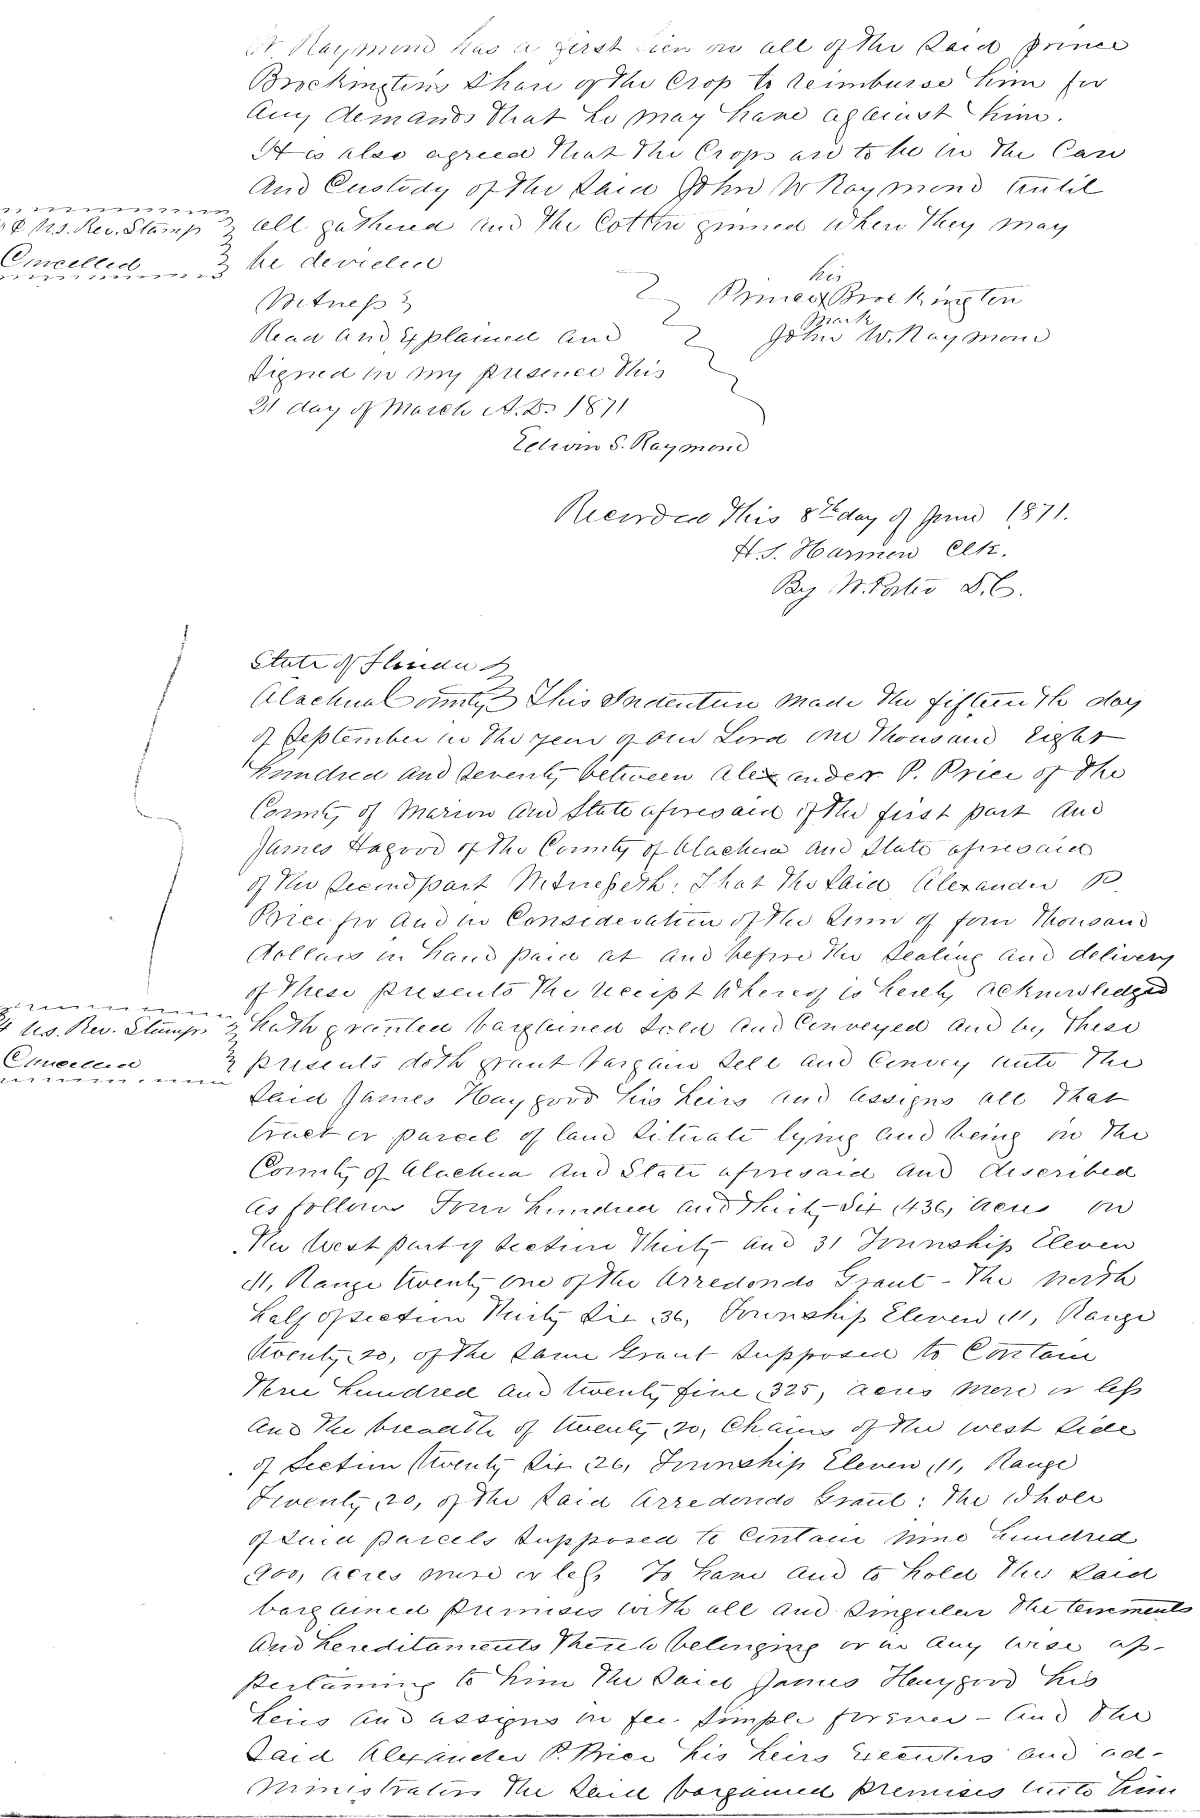 W. Raymond has a first lien on all of the Said Prince
Brockington's Share of the Crop to reimburse him for
any demands that he may have against him.
It is also agreed that the Crops are to be in the Care
and Custody of the Said John W Raymond until
all gathered and the Cotton ginned when they may
be devided
¢ U.S. Rev. Stamp
Cancelled
Witness
Read and Explained and
Signed in my presence this
21 day of March A.D. 1871
Edwin S. Raymond
his
Prince X Brockington
mark
John W. Raymond
Recorded this 8th day of June 1871.
H.S. Harmon Clk.
By W. Porter D.C.
State of Florida
Alachua County This Indenture made the fifteenth day
of September in the year of our Lord one thousand Eight
hundred and seventy between Alexander P. Price of the
County of Marion and State aforesaid of the first part and
James Hagood of the County of Alachua and State aforesaid
of the Second part Witnesseth: That the Said Alexander P.
Price for and in Consideration of the Sum of four thousand
dollars in hand paid at and before the Sealing and delivery
of these presents the receipt whereof is hereby acknowledged
4 U.S. Rev. Stamps
Cancelled
hath granted bargained Sold and Conveyed and by these
presents doth grant bargain Sell and Convey unto the
Said James Haygood his heirs and assigns all that
tract or parcel of land Situate lying and being in the
County of Alachua and State aforesaid and described
as follows Four hundred and thirty-Six (436) acres on
the West part of Section Thirty and 31 Township Eleven
11, Range twenty one of the Arredondo Grant - The north
half of section thirty Six (36) Township Eleven (11) Range
twenty (20) of the Same Grant Supposed to Contain
three hundred and twenty five (325) acres more or less
and the breadth of twenty (20) Chains of the west Side
of Section twenty Six (26) Township Eleven (11) Range
Twenty (20) of the Said Arredondo Grant: The whole
of Said parcels Supposed to Contain nine hundred
(900) acres more or less To have and to hold the Said
bargained premises with all and Singular the tenements
and hereditaments thereto belonging or in any wise ap-
pertaining to him the Said James Haygood his
heirs and assigns in fee Simple forever - and the
Said Alexander P. Price his heirs Executors and ad-
ministrators the Said bargained premises unto him